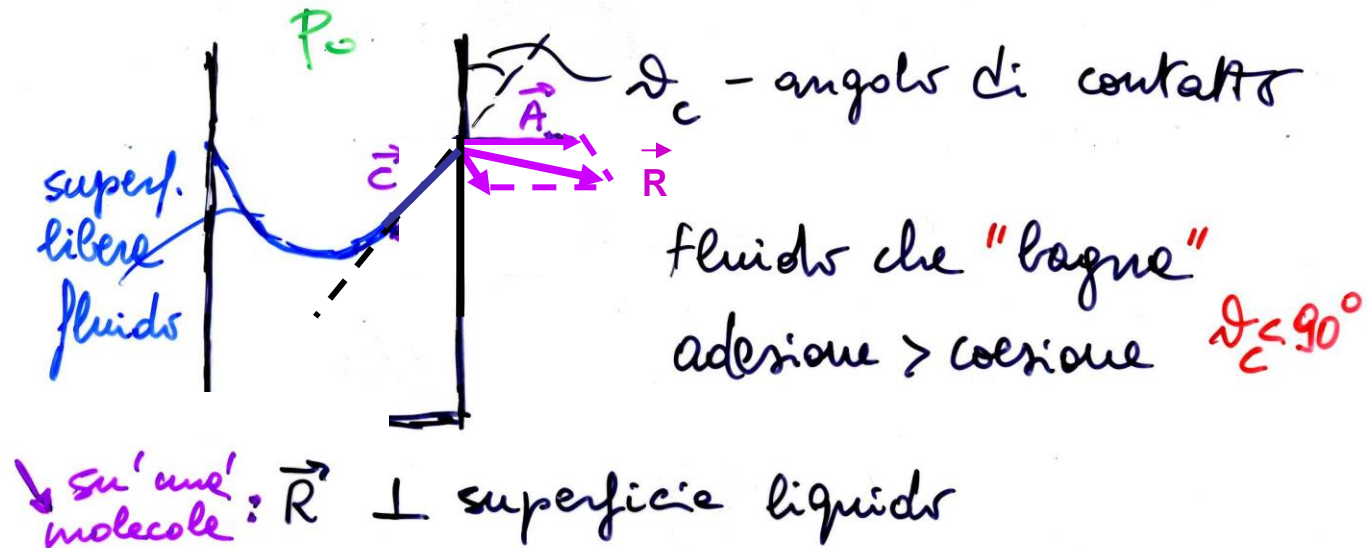 P₀
ϑc - angolo di contatto
A
C
R
superf.
libera
fluido
fluido che "bagna"
adesione > coesione ϑc < 90°
su' una'
molecola : R ⊥ superficie liquido